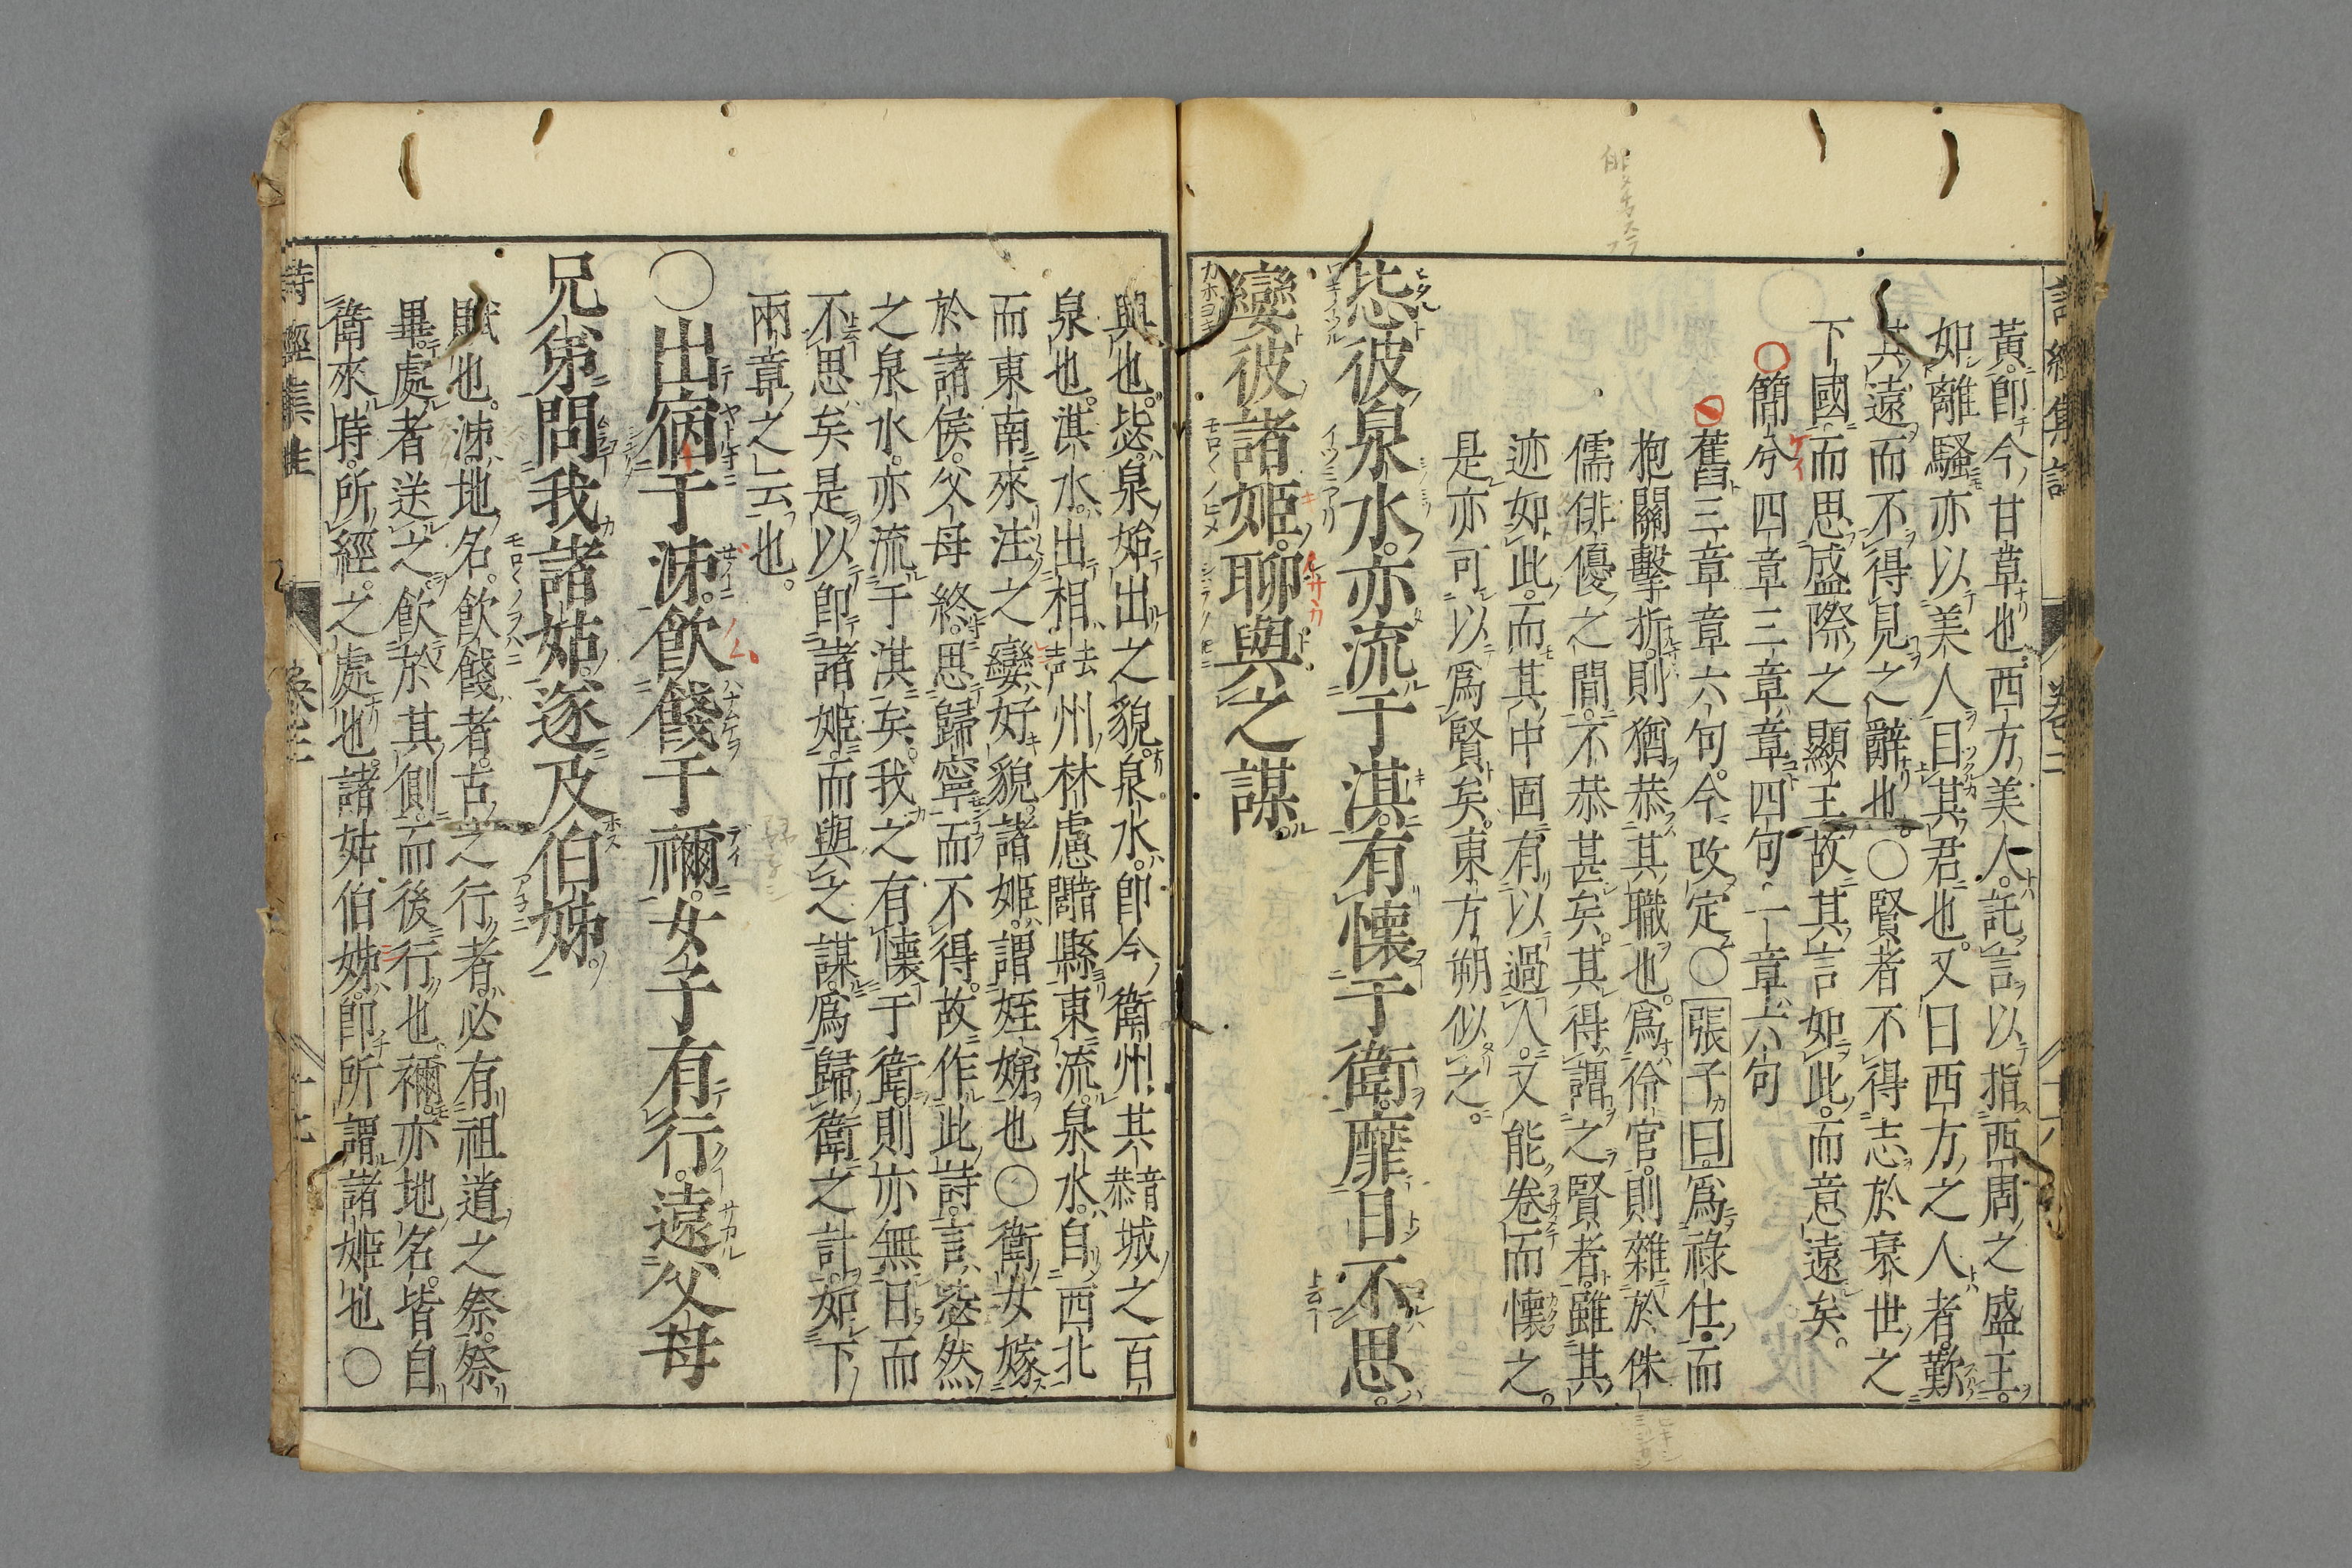 黃。卽今甘草也。西方美人。託言以指西周之盛王。
如離騷亦以美人目其君也。又曰西方之人者。歎
其遠而不得見之辭也。○賢者不得志於衰世之
下國。而思盛際之顯王。故其言如此。而意遠矣。
○簡兮四章三章章四句一章六句
舊三章章六句。今改定○張子曰。爲祿仕。而
抱關擊柝。則猶恭其職也。爲伶官。則雜於侏
儒俳優之間。不恭甚矣。其得謂之賢者。雖其
迹如此。而其中固有以過人。又能卷而懷之。
是亦可以爲賢矣。東方朔似之。
毖彼泉水。亦流于淇。有懷于衛。靡日不思。
孌彼諸姬。聊與之謀。
興也。毖。泉始出之貌。泉水。卽今衛州共音恭城之百
泉也。淇水。出相去聲州林慮縣東流。泉水。自西北
而東南來注之。孌。好貌。諸姬。謂姪娣也○衛女嫁
於諸侯。父母終。思歸寧而不得。故作此詩。言毖然
之泉水。亦流于淇矣。我之有懷于衛。則亦無日而
不思矣。是以卽諸姬。而與之謀。爲歸衛之計。如下
兩章之云也。
○出宿于泲。飮餞于禰。女子有行。遠父母
兄弟。問我諸姑。遂及伯姊。
賦也。泲。地名。飮餞者。古之行者。必有祖道之祭。祭
畢。處者送之。飮於其側。而後行也。禰。亦地名。皆自
衛來時。所經之處也。諸姑伯姊。卽所謂諸姬也○
詩經集註
卷二
十七
詩經集註
卷二
十六